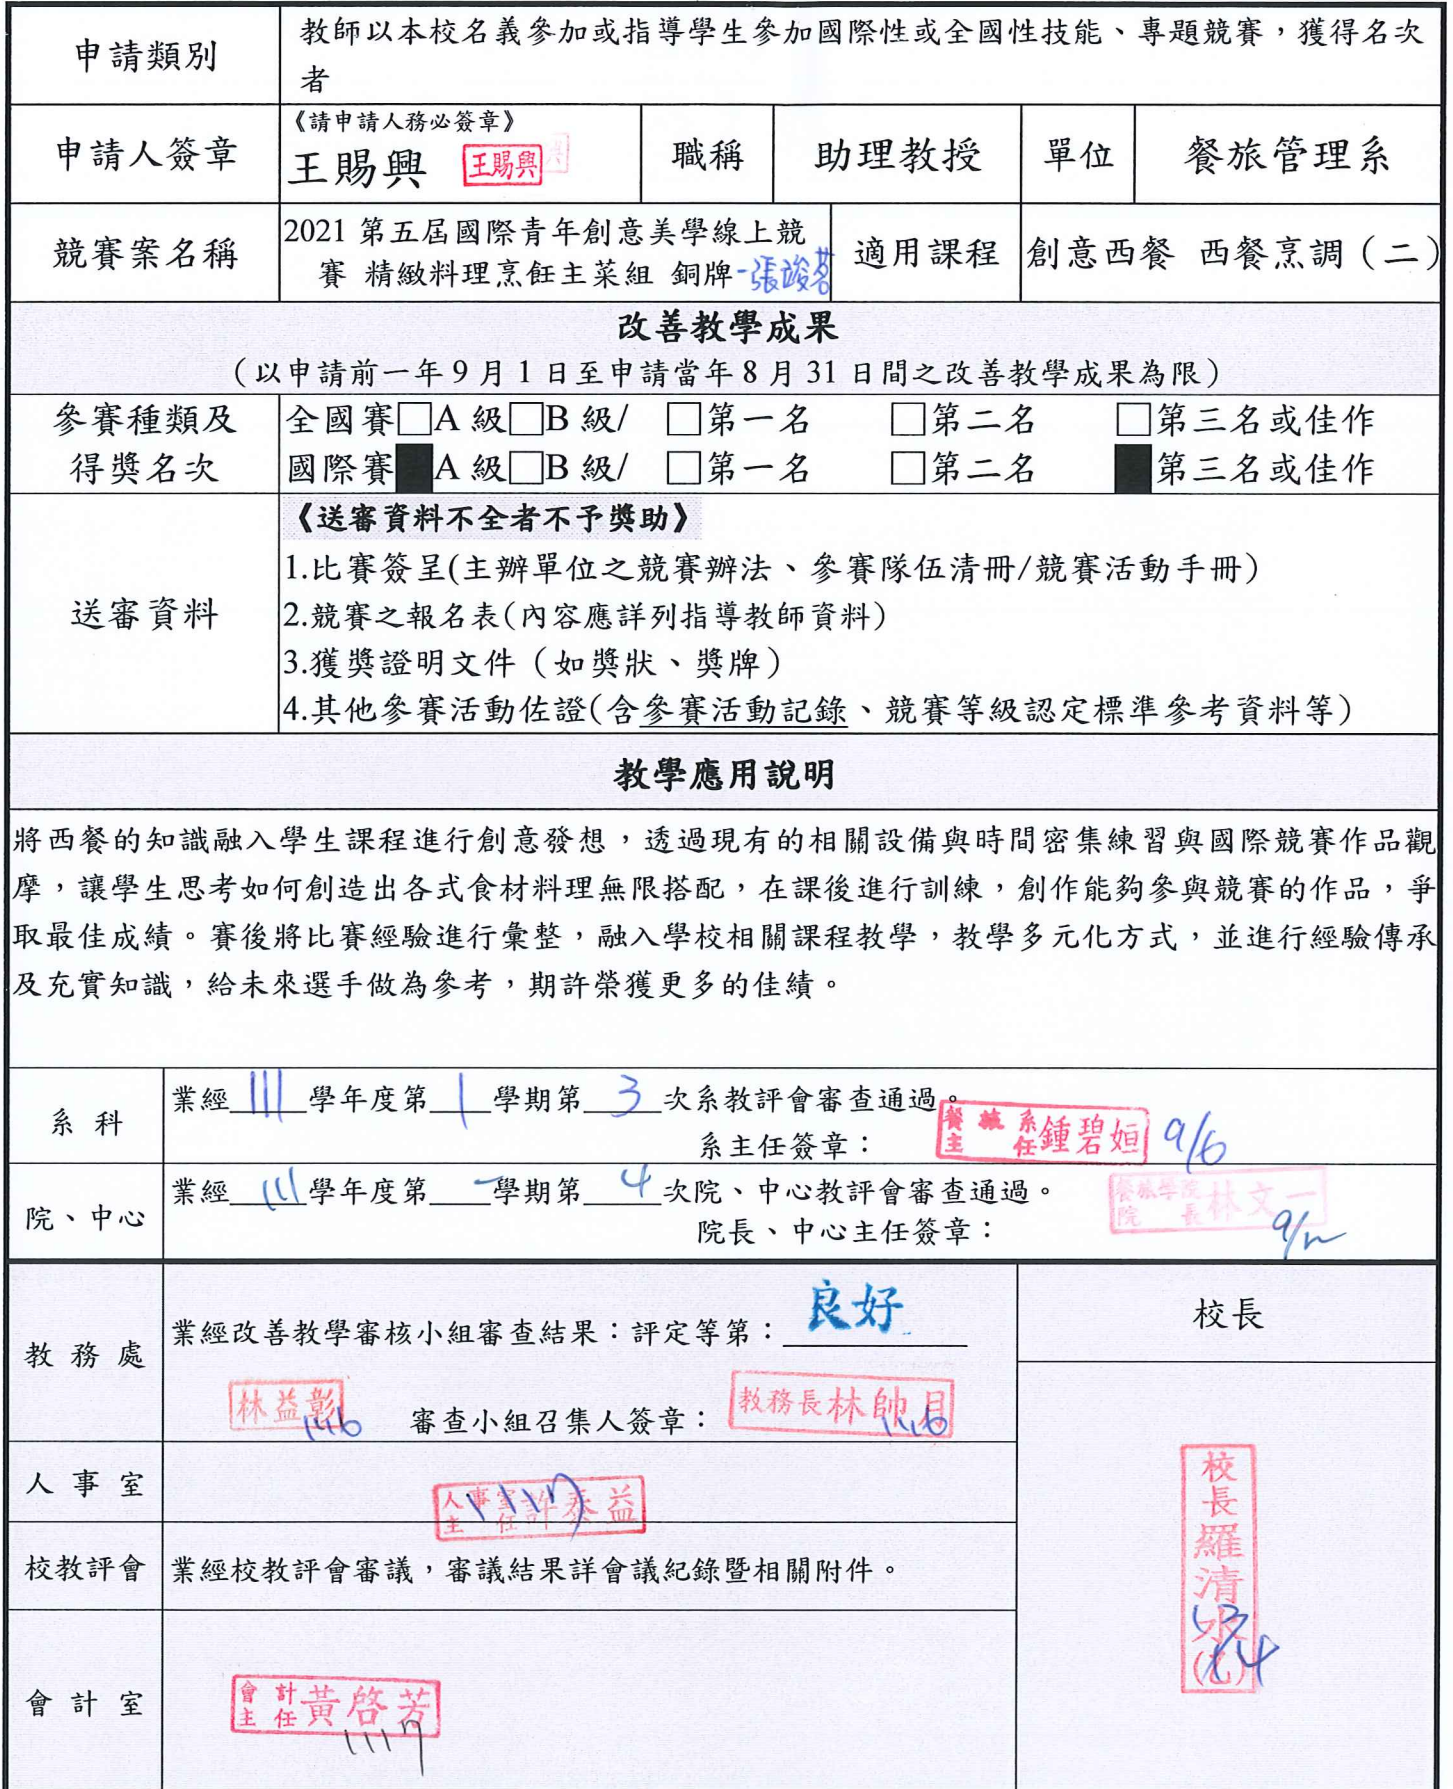 申請類別
教師以本校名義參加或指導學生參加國際性或全國性技能、專題競賽，獲得名次
者
申請人簽章
《請申請人務必簽章》
王賜興 王賜興
職稱 助理教授 單位 餐旅管理系
競賽案名稱
2021 第五屆國際青年創意美學線上競
賽 精緻料理烹飪主菜組 銅牌-張竣茗
適用課程 創意西餐 西餐烹調（二）
改善教學成果
（以申請前一年9月1日至申請當年8月31日間之改善教學成果為限）
參賽種類及
得獎名次
全國賽□A 級□B 級/ □第一名 □第二名 □第三名或佳作
國際賽■A 級□B 級/ □第一名 □第二名 ■第三名或佳作
送審資料
《送審資料不全者不予獎助》
1.比賽簽呈(主辦單位之競賽辦法、參賽隊伍清冊/競賽活動手冊)
2.競賽之報名表(內容應詳列指導教師資料)
3.獲獎證明文件（如獎狀、獎牌）
4.其他參賽活動佐證(含參賽活動記錄、競賽等級認定標準參考資料等)
教學應用說明
將西餐的知識融入學生課程進行創意發想，透過現有的相關設備與時間密集練習與國際競賽作品觀
摩，讓學生思考如何創造出各式食材料理無限搭配，在課後進行訓練，創作能夠參與競賽的作品，爭
取最佳成績。賽後將比賽經驗進行彙整，融入學校相關課程教學，教學多元化方式，並進行經驗傳承
及充實知識，給未來選手做為參考，期許榮獲更多的佳績。
系科
業經111學年度第1學期第3次系教評會審查通過。
系主任簽章： 餐旅系主任鍾碧姮 9/6
院、中心
業經111學年度第一學期第4次院、中心教評會審查通過。
院長、中心主任簽章： 餐旅學院院長林文一 9/12
教務處
業經改善教學審核小組審查結果：評定等第：良好
林益彰 1116 審查小組召集人簽章： 教務長林帥月 1116
校長
人事室
人事室主任許泰益 1117
校教評會
業經校教評會審議，審議結果詳會議紀錄暨相關附件。
校長羅清水(乙)
會計室
會計主任黃啓芳 1117